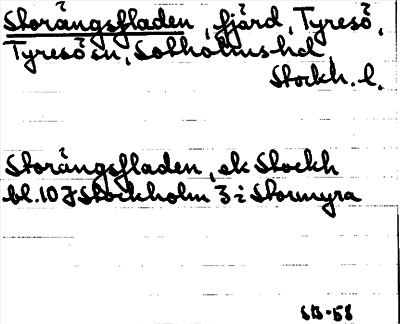 Storängsfladen, fjärd, Tyresö,
Tyresö sn, Sotholms hd
Stockh. l.
Storängsfladen, ek Stockh
bl. 10 J Stockholm 3 i Stormyra
SB-58